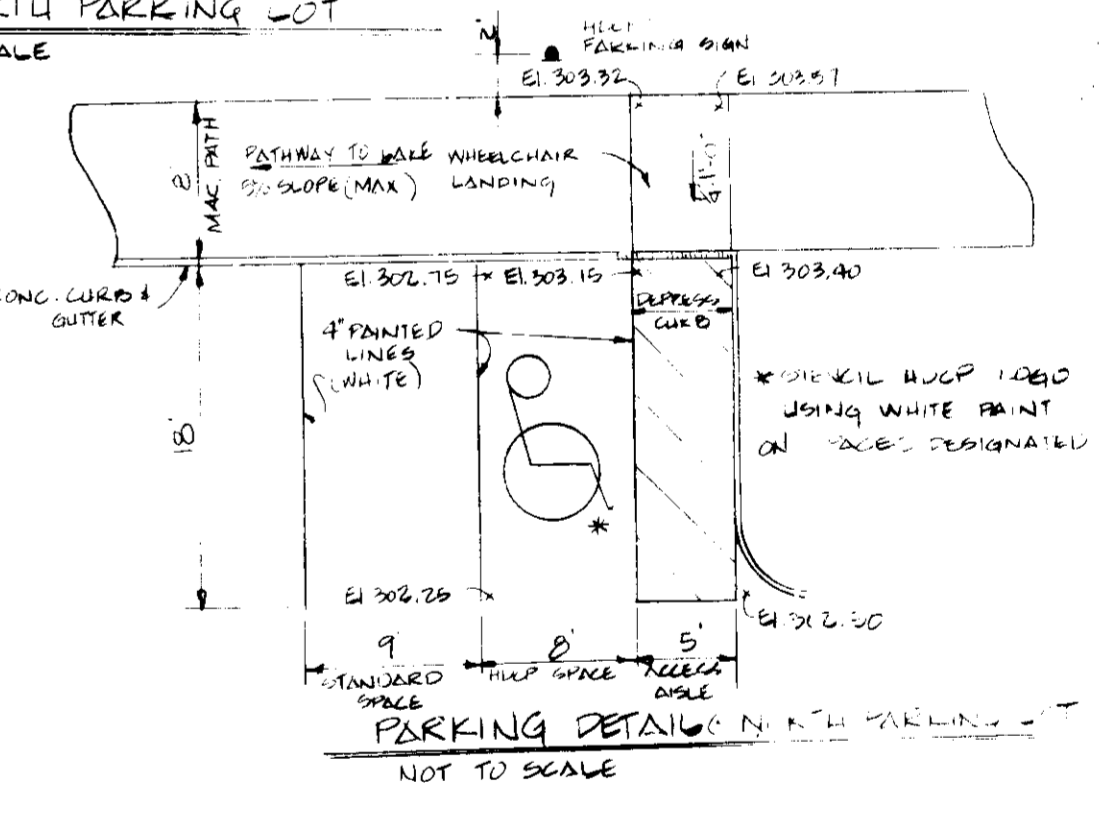 PARKING LOT
2'
PARKING SIGN
El. 303.32
El 303.57
8'
MAC. PATH
PATHWAY TO LAKE
5% SLOPE (MAX)
WHEELCHAIR
LANDING
El. 302.75
El. 303.15
El 303.40
CONC. CURB &
GUTTER
DEPRESS
CURB
4" PAINTED
LINES
(WHITE)
* STENCIL HDCP LOGO
USING WHITE PAINT
ON SPACES DESIGNATED
18'
*
El 302.25
9'
STANDARD
SPACE
8'
HDCP SPACE
5'
ACCESS
AISLE
PARKING DETAIL @ NORTH PARKING LOT
NOT TO SCALE